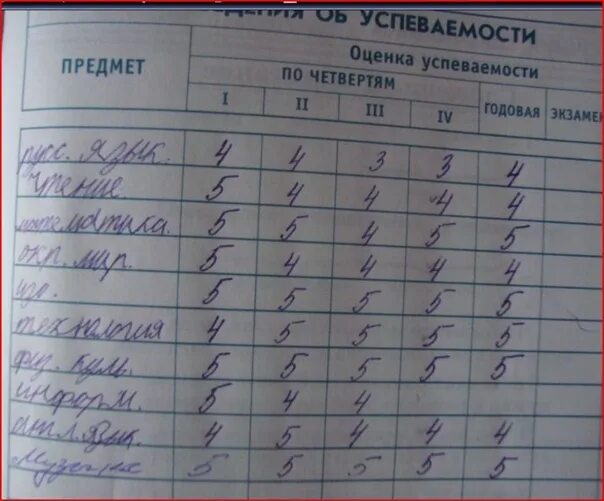 ДЕНИЯ ОБ УСПЕВАЕМОСТИ
ПРЕДМЕТ
Оценка успеваемости
ПО ЧЕТВЕРТЯМ
I II III IV ГОДОВАЯ ЭКЗАМЕН
русс. язык. 4 4 3 3 4
Чтение 5 4 4 4 4
математика. 5 5 4 5 5
окр. мир. 5 4 4 4 4
изо. 5 5 5 5 5
технология 4 5 5 5 5
физ. куль. 5 5 5 5 5
информ. 5 4 4
англ.язык. 4 5 4 4 4
музыка 5 5 5 5 5